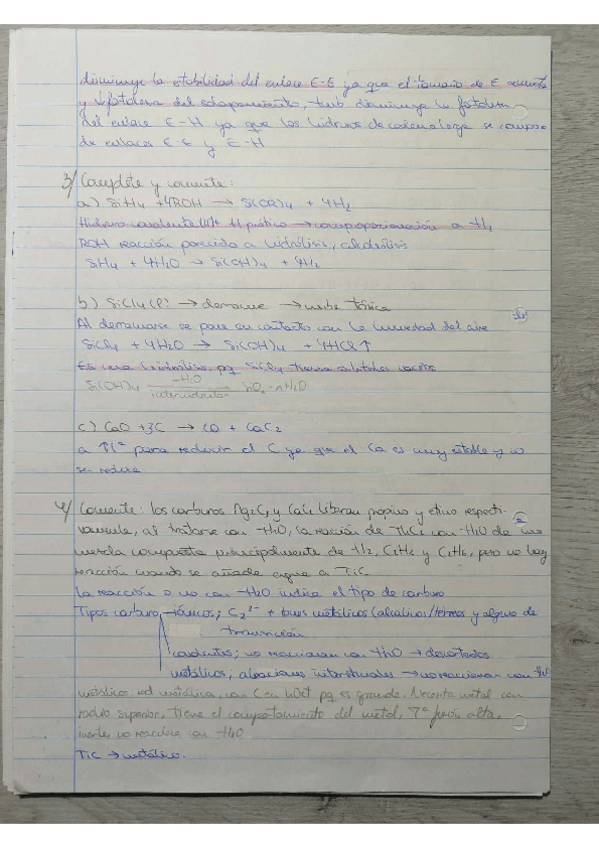 disminuye la estabilidad del enlace E-E ya que el tamaño de E aumenta
y la fortaleza del solapamiento, tmb disminuye la fortaleza
del enlace E-H ya que los hidruros de cadena larga se compone
de enlaces E-E y E-H
3/ Complete y comente:
a) SiH4 + 4ROH → Si(OR)4 + 4H2
Hidruro covalente H- H prótico → comproporcionación a H2
ROH reacción parecida a hidrólisis, alcohólisis
SiH4 + 4H2O → Si(OH)4 + 4H2
b) SiCl4(l) → derrame → nube tóxica
Al derramarse se pone en contacto con la humedad del aire
SiCl4 + 4H2O → Si(OH)4 + 4HCl↑
Es una hidrólisis pq SiCl4 tiene orbitales vacíos
Si(OH)4 -H2O intermolecular → SiO2·nH2O
c) CaO + 3C → CO + CaC2
a ↑Tª para reducir el C ya que el Ca es muy estable y no
se reduce
4/ Comente: los carburos Mg2C3 y CaC2 liberan propino y etino respecti-
vamente, al tratarse con H2O, la reacción de ThC2 con H2O da una
mezcla compuesta principalmente de H2, C2H2 y C2H6, pero no hay
reacción cuando se añade agua a TiC
La reacción o no con H2O indica el tipo de carburo
Tipos carburo iónicos; C2 2- + iones metálicos (alcalinos/térreos y alguno de
transición
covalentes; no reaccionan con H2O → descartados
metálicos; aleaciones intersticiales → no reaccionan con H2O
metálicos: red metálica, con C en hOct pq es grande. Necesita metal con
radio superior, tiene el comportamiento del metal, Tª fusión alta,
inerte, no reacciona con H2O
TiC → metálico.